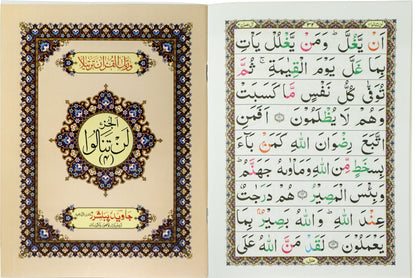 ورتل القرآن ترتيلا
الجزء
لن تنالوا
(۴)
جاوید پبلشرز
اَنْ يَّغُلَّ ؕ وَمَنْ يَّغْلُلْ يَاْتِ
بِمَا غَلَّ يَوْمَ الْقِيٰمَةِ ۚ ثُمَّ
تُوَفّٰى كُلُّ نَفْسٍ مَّا كَسَبَتْ
وَهُمْ لَا يُظْلَمُوْنَ ○ اَفَمَنِ
اتَّبَعَ رِضْوَانَ اللّٰهِ كَمَنْۢ بَآءَ
بِسَخَطٍ مِّنَ اللّٰهِ وَمَاْوٰىهُ جَهَنَّمُ ؕ
وَبِئْسَ الْمَصِيْرُ ○ هُمْ دَرَجٰتٌ
عِنْدَ اللّٰهِ ؕ وَاللّٰهُ بَصِيْرٌۢ بِمَا
يَعْمَلُوْنَ ○ لَقَدْ مَنَّ اللّٰهُ عَلَى